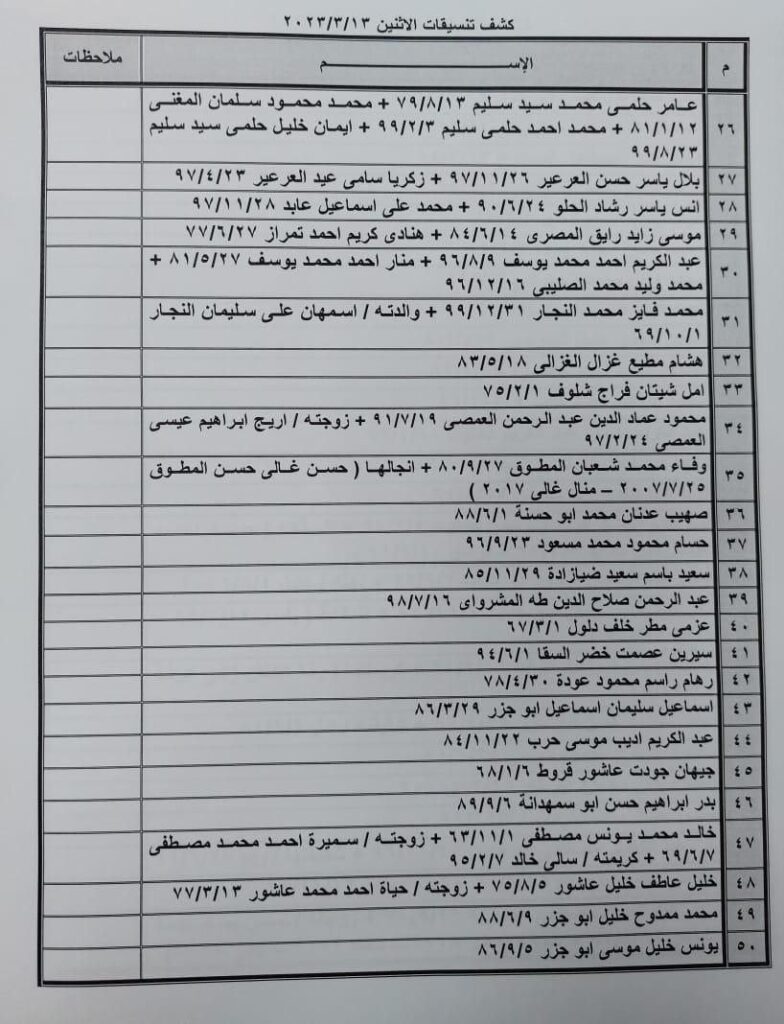 كشف تنسيقات الاثنين ٢٠٢٣/٣/١٣
م الإســـــم ملاحظات
عامر حلمى محمد سيد سليم ٧٩/٨/١٣ + محمد محمود سلمان المغنى
٢٦ ٨١/١/١٢ + محمد احمد حلمى سليم ٩٩/٢/٣ + ايمان خليل حلمى سيد سليم
٩٩/٨/٢٣
٢٧ بلال ياسر حسن العرعير ٩٧/١١/٢٦ + زكريا سامى عيد العرعير ٩٧/٤/٢٣
٢٨ انس ياسر رشاد الحلو ٩٠/٦/٢٤ + محمد على اسماعيل عابد ٩٧/١١/٢٨
٢٩ موسى زايد رايق المصرى ٨٤/٦/١٤ + هنادى كريم احمد تمراز ٧٧/٦/٢٧
٣٠ عبد الكريم احمد محمد يوسف ٩٦/٨/٩ + منار احمد محمد يوسف ٨١/٥/٢٧ +
محمد وليد محمد الصليبى ٩٦/١٢/١٦
٣١ محمد فايز محمد النجار ٩٩/١٢/٣١ + والدته / اسمهان على سليمان النجار
٦٩/١٠/١
٣٢ هشام مطيع غزال الغزالى ٨٣/٥/١٨
٣٣ امل شيتان فراج شلوف ٧٥/٢/١
٣٤ محمود عماد الدين عبد الرحمن العمصى ٩١/٧/١٩ + زوجته / اريج ابراهيم عيسى
العمصى ٩٧/٢/٢٤
٣٥ وفاء محمد شعبان المطوق ٨٠/٩/٢٧ + انجالها ( حسن غالى حسن المطوق
٢٠٠٧/٧/٢٥ – منال غالى ٢٠١٧ )
٣٦ صهيب عدنان محمد ابو حسنة ٨٨/٦/١
٣٧ حسام محمود محمد مسعود ٩٦/٩/٢٣
٣٨ سعيد باسم سعيد ضيازادة ٨٥/١١/٢٩
٣٩ عبد الرحمن صلاح الدين طه المشرواى ٩٨/٧/١٦
٤٠ عزمى مطر خلف دلول ٦٧/٣/١
٤١ سيرين عصمت خضر السقا ٩٤/٦/١
٤٢ رهام راسم محمود عودة ٧٨/٤/٣٠
٤٣ اسماعيل سليمان اسماعيل ابو جزر ٨٦/٣/٢٩
٤٤ عبد الكريم اديب موسى حرب ٨٤/١١/٢٢
٤٥ جيهان جودت عاشور قروط ٦٨/١/٦
٤٦ بدر ابراهيم حسن ابو سمهدانة ٨٩/٩/٦
٤٧ خالد محمد يونس مصطفى ٦٣/١١/١ + زوجته / سميرة احمد محمد مصطفى
٦٩/٦/٧ + كريمته / سالى خالد ٩٥/٢/٧
٤٨ خليل عاطف خليل عاشور ٧٥/٨/٥ + زوجته / حياة احمد محمد عاشور ٧٧/٣/١٣
٤٩ محمد ممدوح خليل ابو جزر ٨٨/٦/٩
٥٠ يونس خليل موسى ابو جزر ٨٦/٩/٥